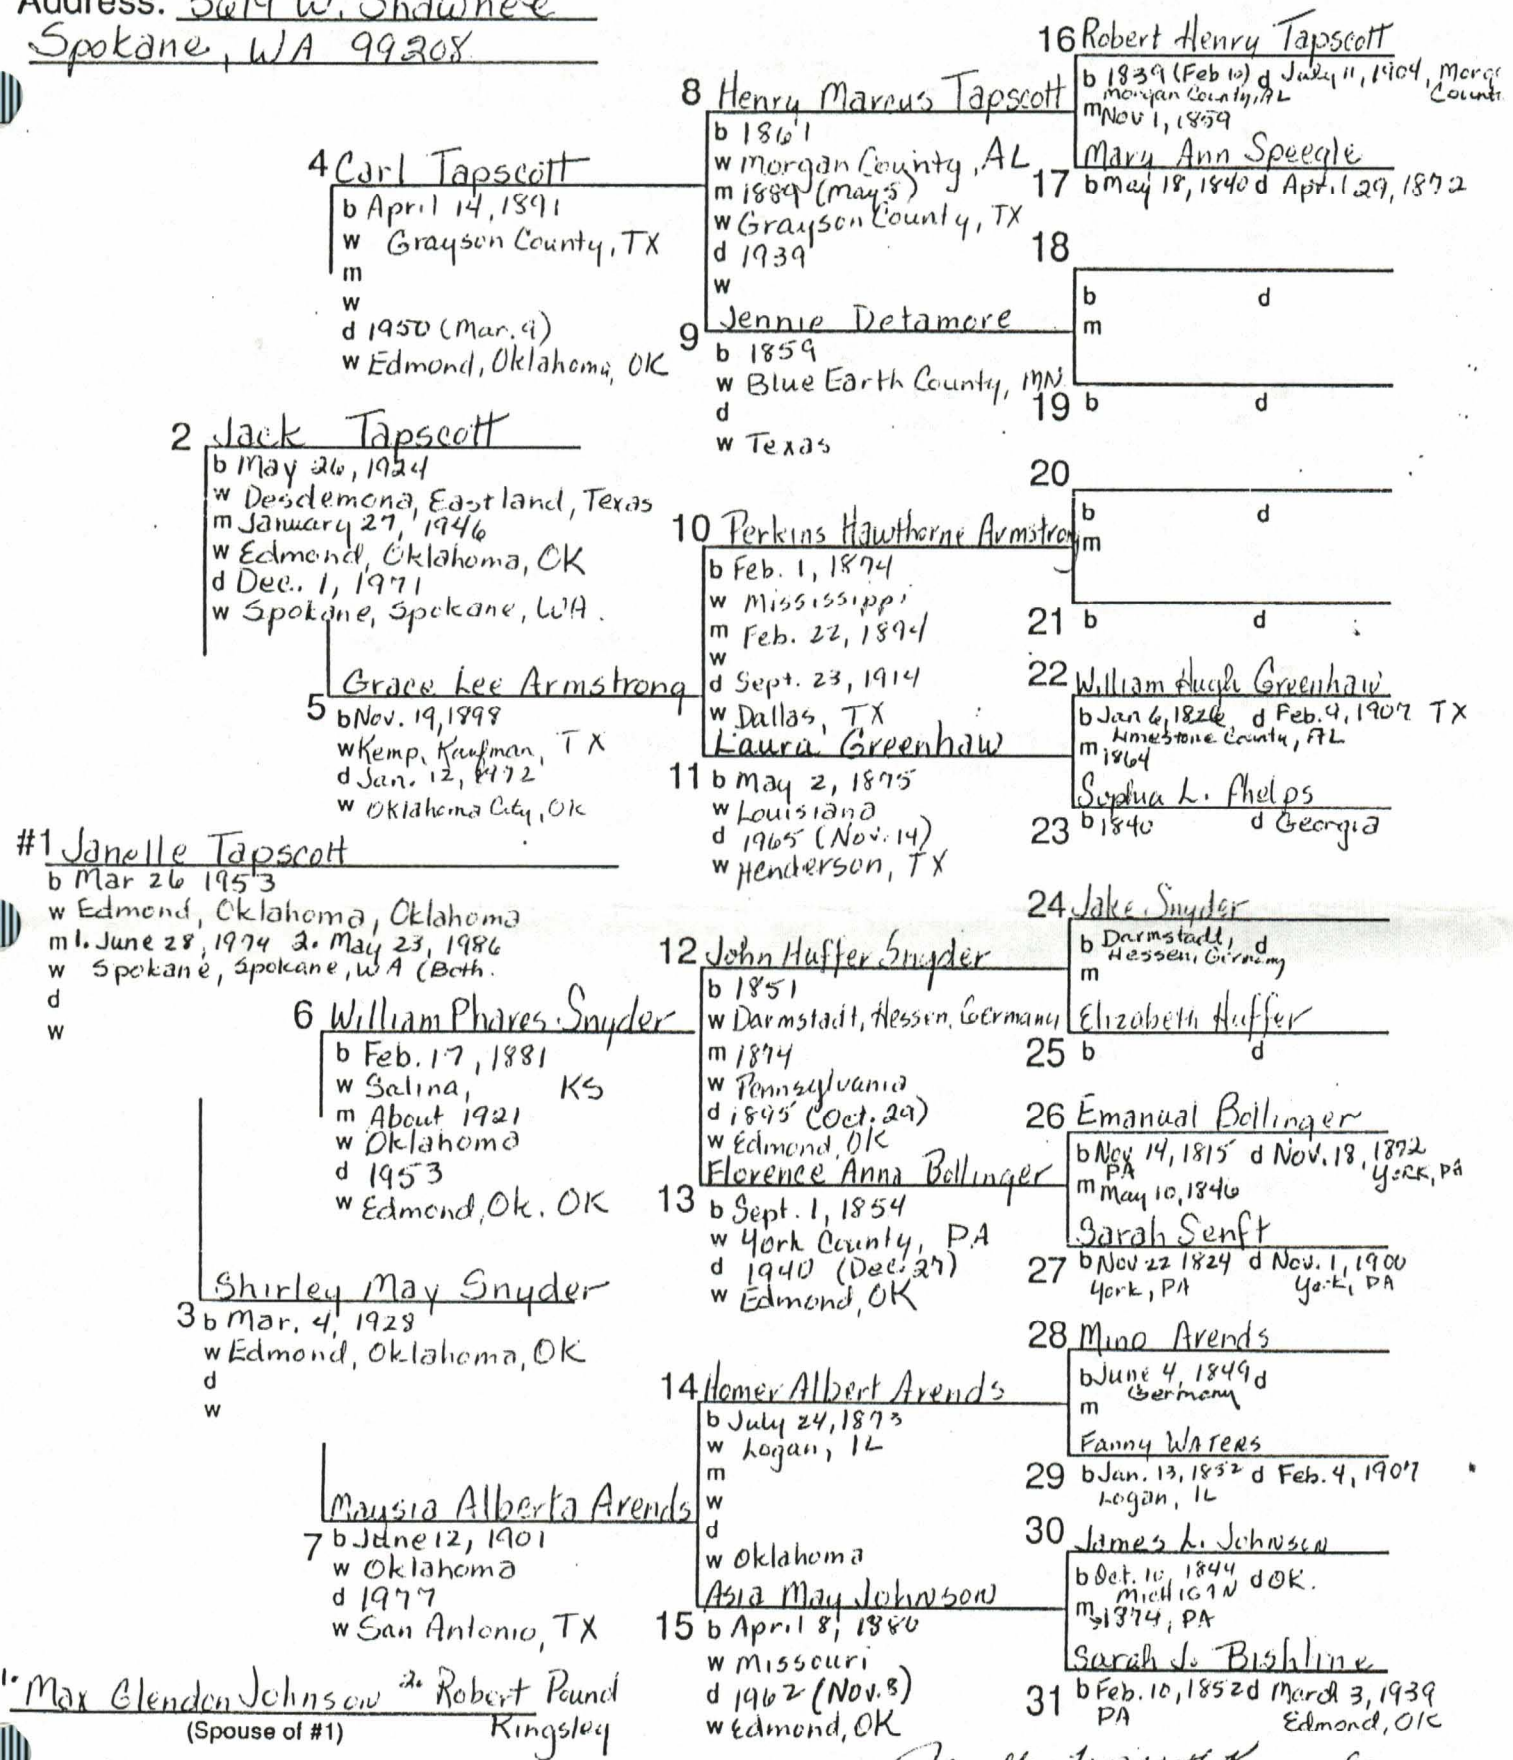 Address: 3614 W. Shawnee
Spokane, WA 99208
#1 Janelle Tapscott
b Mar 26 1953
w Edmond, Oklahoma, Oklahoma
m 1. June 28, 1974 2. May 23, 1986
w Spokane, Spokane, WA (Both.
d
w
1. Max Glendon Johnson 2. Robert Pound
Kingsley
(Spouse of #1)
2 Jack Tapscott
b May 26, 1924
w Desdemona, Eastland, Texas
m January 27, 1946
w Edmond, Oklahoma, OK
d Dec. 1, 1971
w Spokane, Spokane, WA.
Shirley May Snyder
3 b Mar. 4, 1928
w Edmond, Oklahoma, OK
d
w
4 Carl Tapscott
b April 14, 1891
w Grayson County, TX
m
w
d 1950 (Mar. 9)
w Edmond, Oklahoma, OK
Grace Lee Armstrong
5 b Nov. 19, 1898
w Kemp, Kaufman, TX
d Jan. 12, 1972
w Oklahoma City, Ok
6 William Phares Snyder
b Feb. 17, 1881
w Salina, KS
m About 1921
w Oklahoma
d 1953
w Edmond, Ok. OK
Maysia Alberta Arends
7 b June 12, 1901
w Oklahoma
d 1977
w San Antonio, TX
8 Henry Marcus Tapscott
b 1861
w Morgan County, AL
m 1889 (May 5)
w Grayson County, TX
d 1939
w
Jennie Detamore
9 b 1859
w Blue Earth County, MN
d
w Texas
10 Perkins Hawthorne Armstrong
b Feb. 1, 1874
w Mississippi
m Feb. 22, 1894
w
d Sept. 23, 1914
w Dallas, TX
Laura Greenhaw
11 b May 2, 1875
w Louisiana
d 1965 (Nov. 14)
w Henderson, TX
12 John Huffer Snyder
b 1851
w Darmstadt, Hessen, Germany
m 1874
w Pennsylvania
d 1895 (Oct. 29)
w Edmond, OK
Florence Anna Bollinger
13 b Sept. 1, 1854
w York County, PA
d 1940 (Dec. 27)
w Edmond, OK
14 Homer Albert Arends
b July 24, 1873
w Logan, IL
m
w
d
w Oklahoma
Asia May Johnson
15 b April 8, 1880
w Missouri
d 1962 (Nov. 8)
w Edmond, OK
16 Robert Henry Tapscott
b 1839 (Feb 10) d July 11, 1904, Morgan
Morgan County, AL County
m Nov 1, 1859
Mary Ann Speegle
17 b May 18, 1840 d April 29, 1872
18
b d
m
19 b d
20
b d
m
21 b d
22 William Hugh Greenhaw
b Jan 6, 1826, d Feb. 9, 1907 TX
Limestone County, AL
m 1864
Sophia L. Phelps
23 b 1840 d Georgia
24 Jake Snyder
b Darmstadt, d
Hessen, Germany
m
Elizabeth Huffer
25 b d
26 Emanual Bollinger
b Nov 14, 1815 d Nov. 18, 1872
PA York, PA
m May 10, 1846
Sarah Senft
27 b Nov 22 1824 d Nov. 1, 1900
York, PA York, PA
28 Mino Arends
b June 4, 1849 d
Germany
m
Fanny Waters
29 b Jan. 13, 1852 d Feb. 4, 1907
Logan, IL
30 James L. Johnson
b Oct. 10, 1844 d OK.
Michigan
m 1874, PA
Sarah J. Bishline
31 b Feb. 10, 1852 d March 3, 1939
PA Edmond, OK